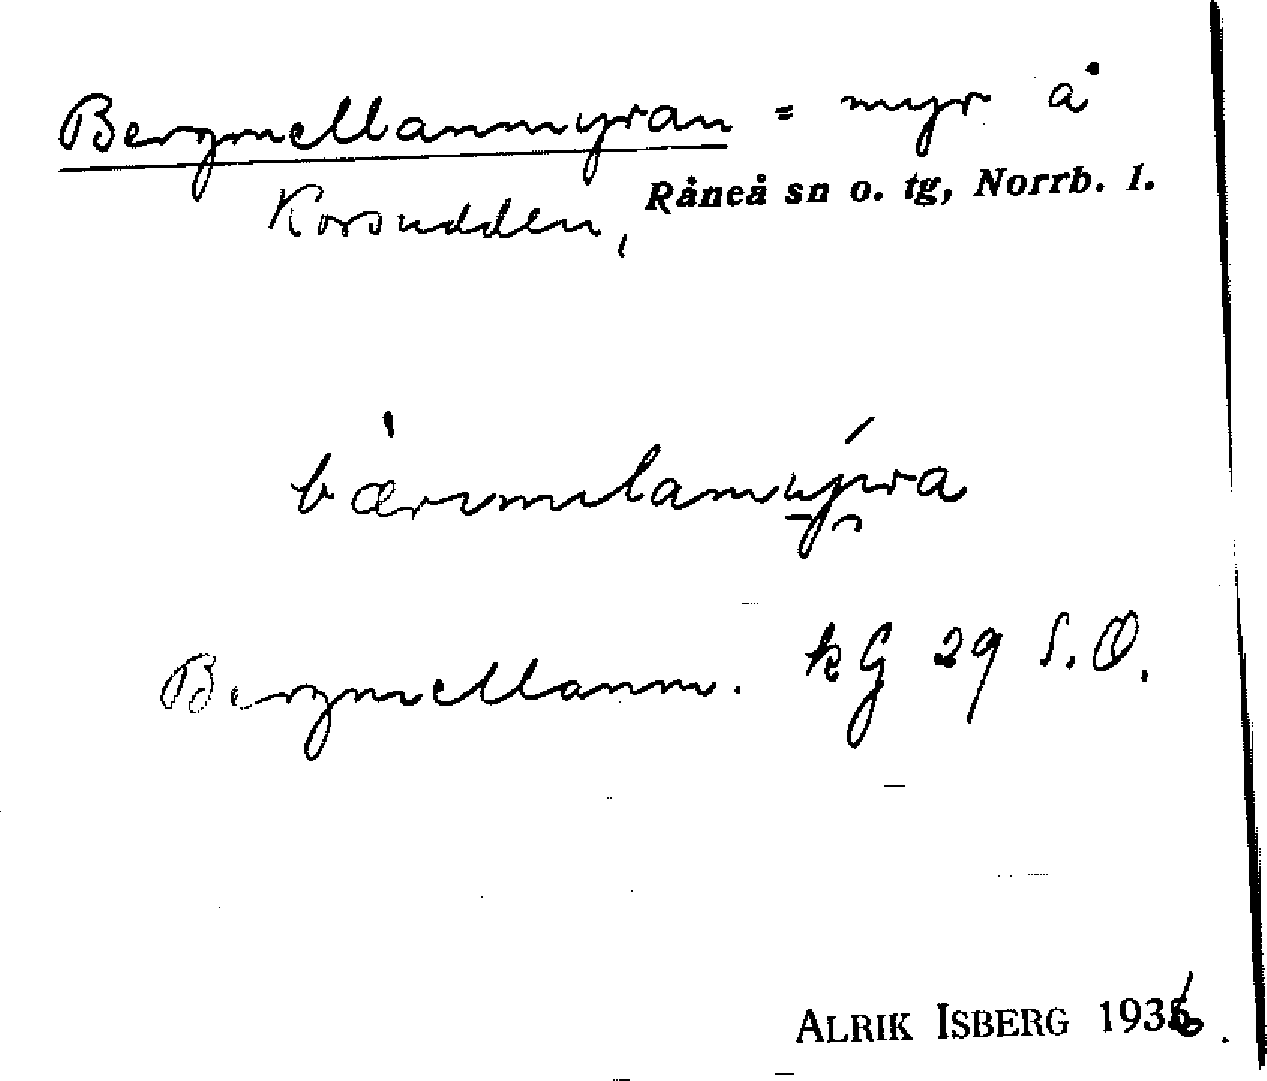 Bergmellanmyran = myr å
Korsudden, Råneå sn o. tg, Norrb. l.
bærmelamyra
Bergmellanm. kG 29 S.O.
ALRIK ISBERG 1936.